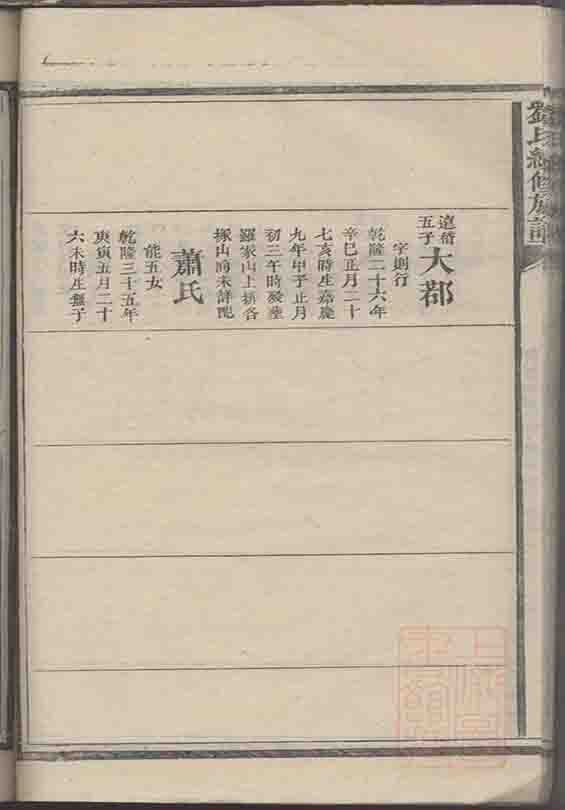 氏續修族譜
遠楷五子
大都
字則行
乾隆二十六年
辛巳正月二十
七亥時生嘉慶
九年甲子正月
初三午時歿葬
羅家山上排各
塚山向未詳配
蕭氏
能五女
乾隆三十五年
庚寅五月二十
六未時生無子